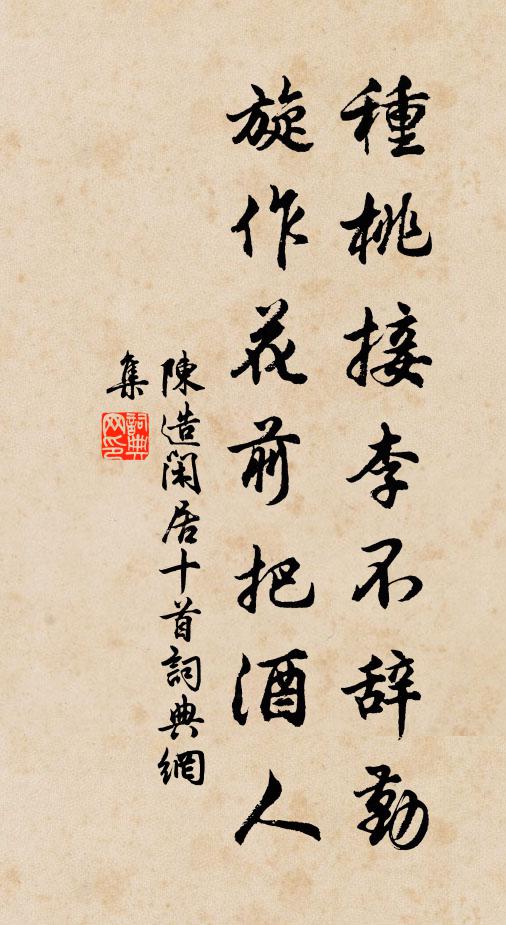 種桃接李不辞勤
旋作花前把酒人
陳造閑居十首詞典網
集
詞典網印